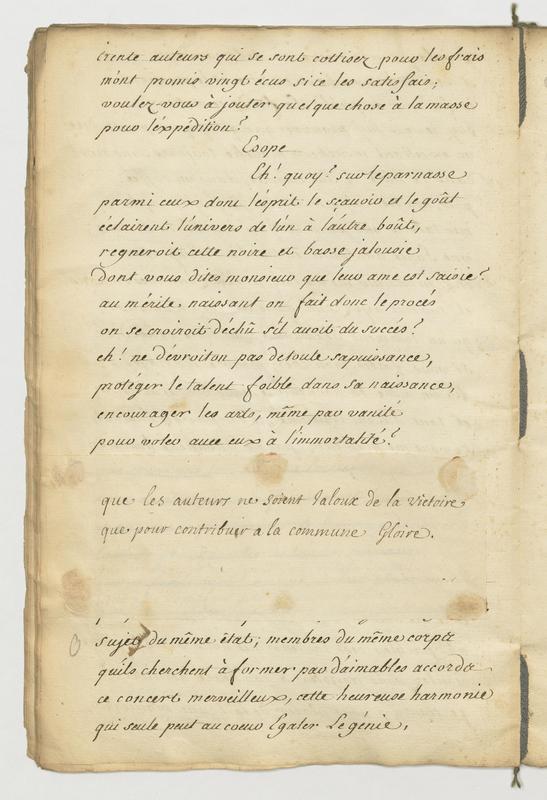 trente auteurs qui se sont cottisez pour les frais
m'ont promis vingt écus si ie les satisfais;
voulez-vous à jouter quelque chose à la masse
pour l'éxpedition?
Esope
Eh! quoy? sur le parnasse
parmi ceux dont l'esprit le sçavoir et le goût
éclairent l'univers de l'un à l'autre boût,
regneroit cette noire et basse jalousie
dont vous dites monsieur que leur ame est saisie?
au mérite naissant on fait donc le procés
on se croiroit déchû s'il avoit du succés?
eh! ne dévroit on pas de toute sa puissance,
protéger le talent foible dans sa naissance,
encourager les arts, même par vanité
pour voler avec eux à l'immortalité?
que les auteurs ne soient Jaloux de la victoire
que pour contribuer a la commune Gloire.
sujets du même état; membres du même corps
qu'ils cherchent à former par d'aimables accords
ce concert merveilleux, cette heureuse harmonie
qui seule peut au coeur Egaler Le génie,